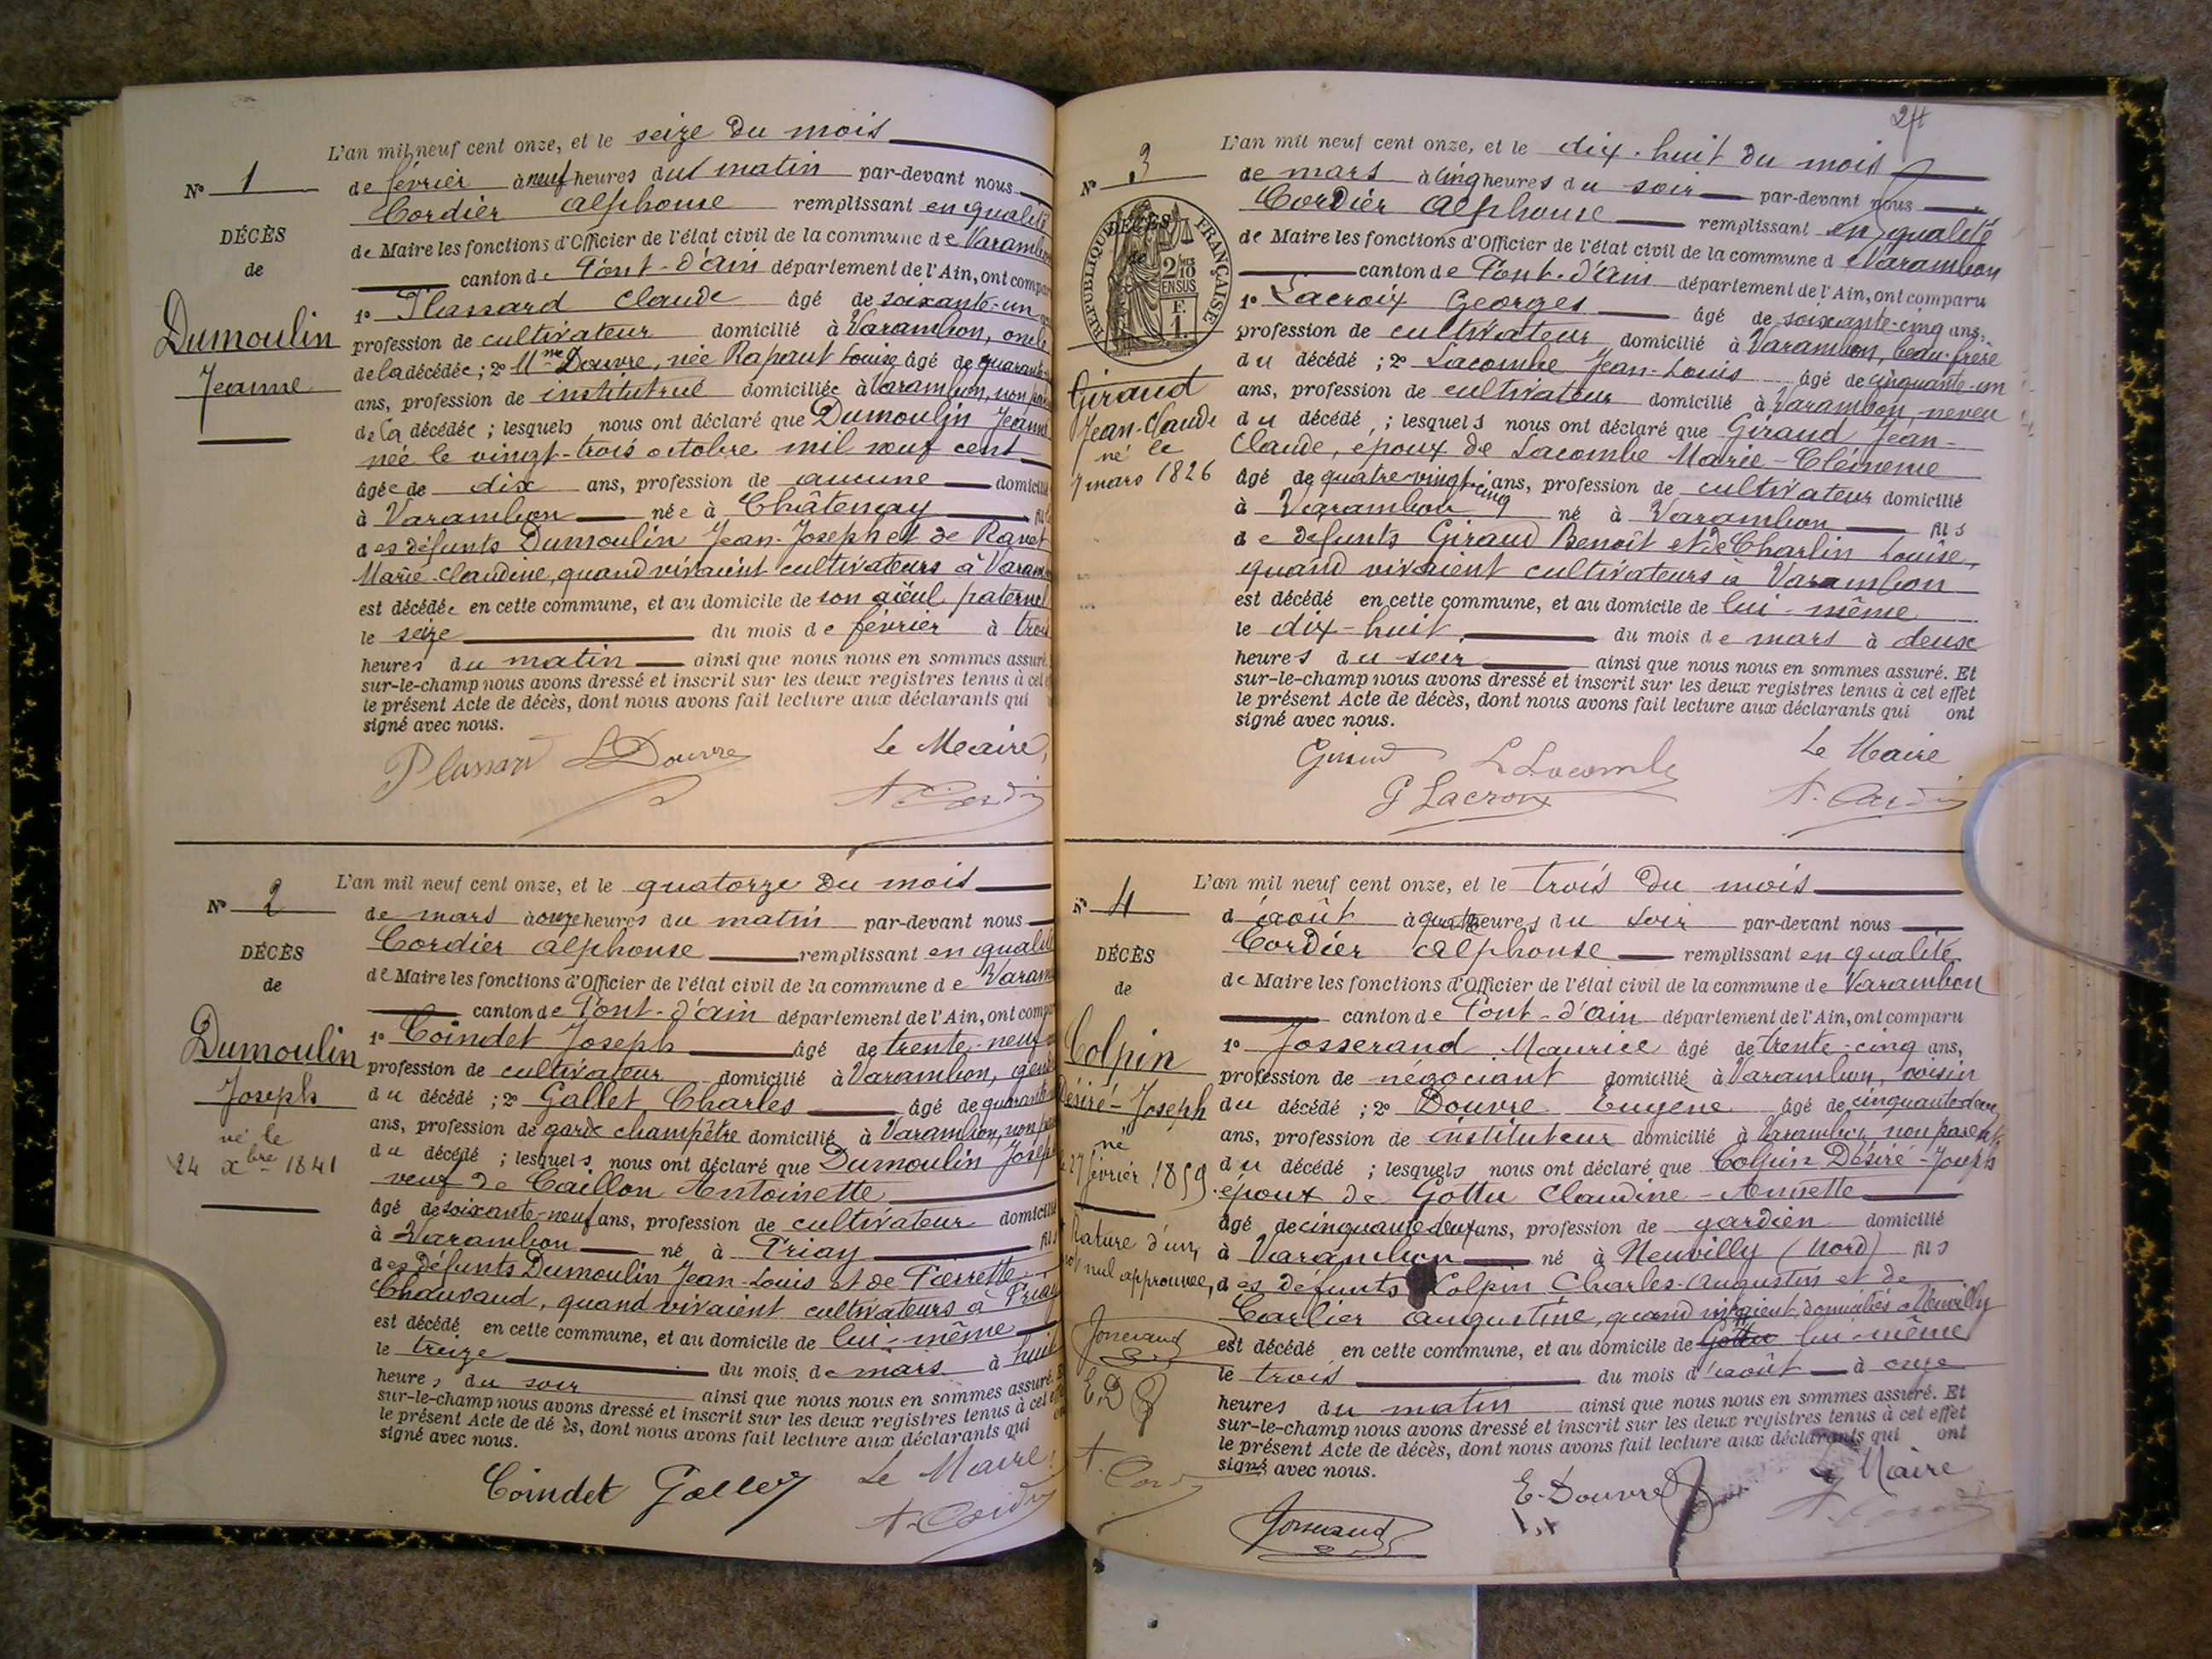 L'an mil neuf cent onze, et le seize du mois
N° 1
de février à neuf heures du matin par-devant nous
Cordier Alphonse remplissant en qualité
DÉCÈS
de Maire les fonctions d'Officier de l'état civil de la commune de Varambon
de
canton de Pont-d'Ain département de l'Ain, ont comparu
1° Plassard Claude âgé de soixante-un
Dumoulin
profession de cultivateur domicilié à Varambon, oncle
Jeanne
de la décédée ; 2° Mme Douvre, née Rapaut Louise âgé de quarante
ans, profession de institutrice domiciliée à Varambon, non
de la décédée ; lesquels nous ont déclaré que Dumoulin Jeanne
née le vingt-trois octobre mil neuf cent
âgée de dix ans, profession de aucune domicilié
à Varambon née à Châtenay
des défunts Dumoulin Jean-Joseph et de Ravet
Marie-Claudine, quand vivaient cultivateurs à Varambon
est décédée en cette commune, et au domicile de son aïeul paternel
le seize du mois de février à trois
heures du matin ainsi que nous nous en sommes assuré.
sur-le-champ nous avons dressé et inscrit sur les deux registres tenus à cet
le présent Acte de décès, dont nous avons fait lecture aux déclarants qui
signé avec nous.
Plassard LDouvre Le Maire,
A. Cordier
L'an mil neuf cent onze, et le quatorze du mois
N° 2
de mars à onze heures du matin par-devant nous
Cordier Alphonse remplissant en qualité
DÉCÈS
de Maire les fonctions d'Officier de l'état civil de la commune de Varam
de
canton de Pont-d'Ain département de l'Ain, ont comp
1° Coindet Joseph âgé de trente-neuf
Dumoulin
profession de cultivateur domicilié à Varambon, gendre
Joseph
du décédé ; 2° Gallet Charles âgé de quarante
né le
ans, profession de garde champêtre domicilié à Varambon, non
24 xbre 1841
du décédé ; lesquels nous ont déclaré que Dumoulin Joseph
veuf de Caillon Antoinette
âgé de soixante-neuf ans, profession de cultivateur domicilié
à Varambon né à Priay fils
des défunts Dumoulin Jean-Louis et de Pierrette
Chauvaud, quand vivaient cultivateurs à Priay
est décédé en cette commune, et au domicile de lui-même
le treize du mois de mars à huit
heures du soir ainsi que nous nous en sommes assuré.
sur-le-champ nous avons dressé et inscrit sur les deux registres tenus à cet
le présent Acte de dé ès, dont nous avons fait lecture aux déclarants qui
signé avec nous.
Coindet Gallet Le Maire
A. Cordier
24
L'an mil neuf cent onze, et le dix-huit du mois
N° 3
de mars à cinq heures du soir par-devant nous
Cordier Alphonse remplissant en qualité
DÉCÈS
de
RÉPUBLIQUE FRANÇAISE
2/10 EN SUS
F. 1.
de Maire les fonctions d'Officier de l'état civil de la commune de Varambon
canton de Pont-d'Ain département de l'Ain, ont comparu
1° Lacroix Georges âgé de soixante-cinq ans,
profession de cultivateur domicilié à Varambon, beau-frère
du décédé ; 2° Lacombe Jean-Louis âgé de cinquante-un
Giraud
ans, profession de cultivateur domicilié à Varambon, neveu
Jean-Claude
du décédé ; lesquels nous ont déclaré que Giraud Jean-
né le
Claude, époux de Lacombe Marie-Clémence
7 mars 1826
âgé de quatre-vingt-cinq ans, profession de cultivateur domicilié
à Varambon né à Varambon fils
de défunts Giraud Benoît et de Charlin Louise,
quand vivaient cultivateurs à Varambon
est décédé en cette commune, et au domicile de lui-même
le dix-huit du mois de mars à deux
heures du soir ainsi que nous nous en sommes assuré. Et
sur-le-champ nous avons dressé et inscrit sur les deux registres tenus à cet effet
le présent Acte de décès, dont nous avons fait lecture aux déclarants qui ont
signé avec nous.
Giraud L Lacombe Le Maire
G Lacroix A. Cordier
L'an mil neuf cent onze, et le trois du mois
N° 4
d'août à quatre heures du soir par-devant nous
Cordier Alphonse remplissant en qualité
DÉCÈS
de Maire les fonctions d'Officier de l'état civil de la commune de Varambon
de
canton de Pont-d'Ain département de l'Ain, ont comparu
1° Josserand Maurice âgé de trente-cinq ans,
Colpin
profession de négociant domicilié à Varambon, voisin
Désiré-Joseph
du décédé ; 2° Douvre Eugène âgé de cinquante-deux
né
ans, profession de instituteur domicilié à Varambon, non parent
27 février 1859.
du décédé ; lesquels nous ont déclaré que Colpin Désiré-Joseph
époux de Gottu Claudine-Annette
âgé de cinquante-deux ans, profession de gardien domicilié
Rature d'un
à Varambon né à Neuvilly (Nord) fils
mot nul approuvée,
des défunts Colpin Charles-Augustin et de
Carlier Augustine, quand vivaient domiciliés à Neuvilly
Josserand
est décédé en cette commune, et au domicile de Gottu lui-même
le trois du mois d'août à onze
E.D
heures du matin ainsi que nous nous en sommes assuré. Et
sur-le-champ nous avons dressé et inscrit sur les deux registres tenus à cet effet
A. Cord
le présent Acte de décès, dont nous avons fait lecture aux déclarants qui ont
signé avec nous.
E. Douvre Le Maire
Josserand A. Cordier